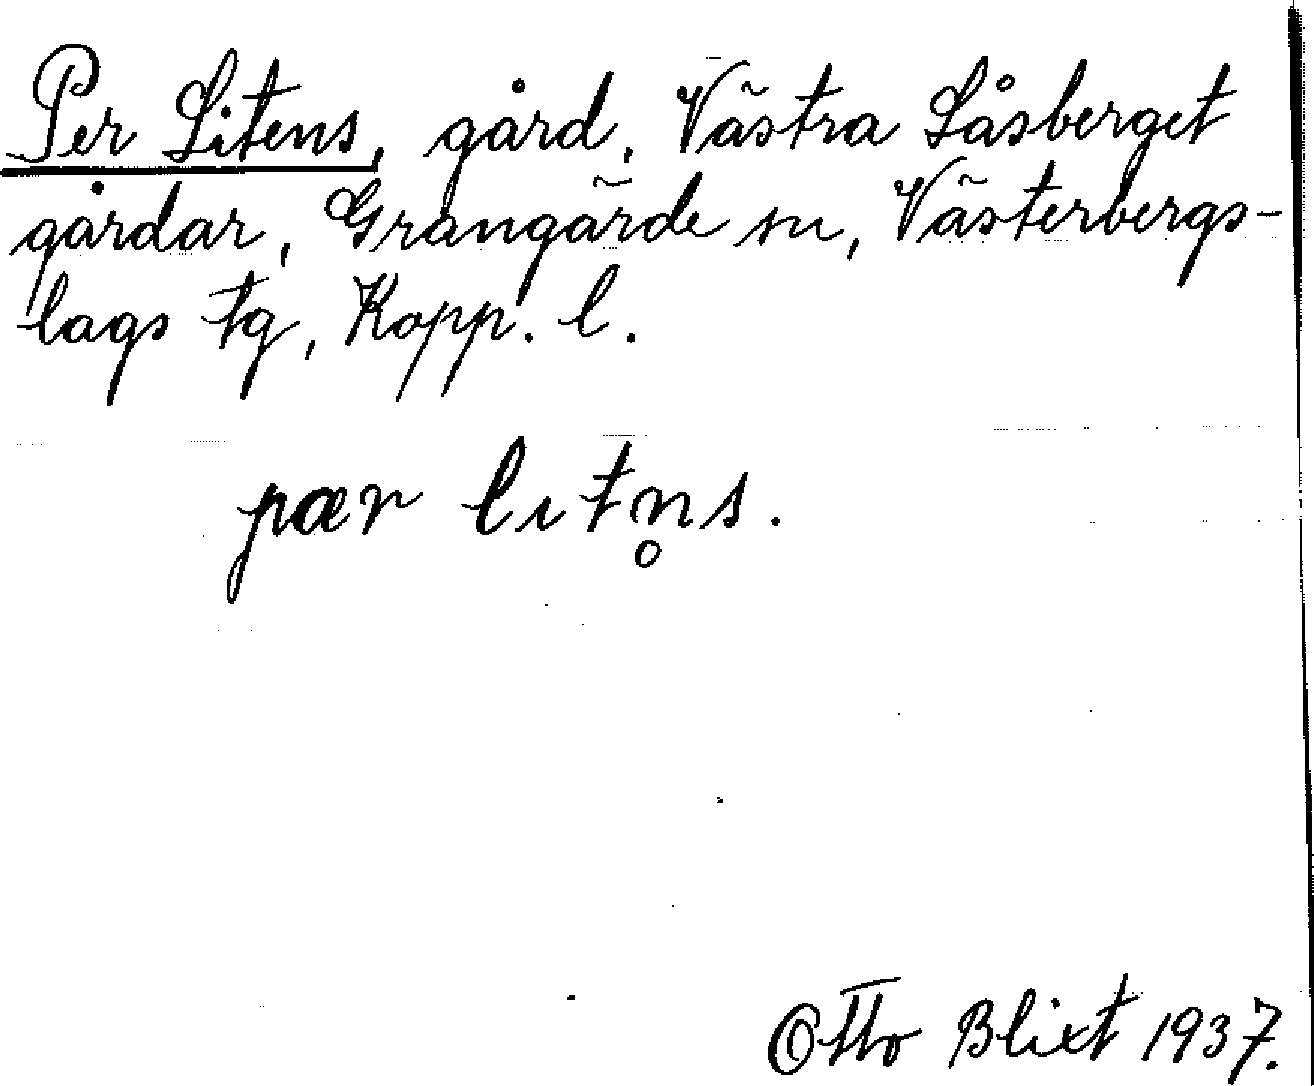 Per Litens, gård, Västra Låsberget
gårdar, Grangärde sn, Västerbergs-
lags tg, Kopp. l.
pær lıtn̥s.
Otto Blixt 1937.